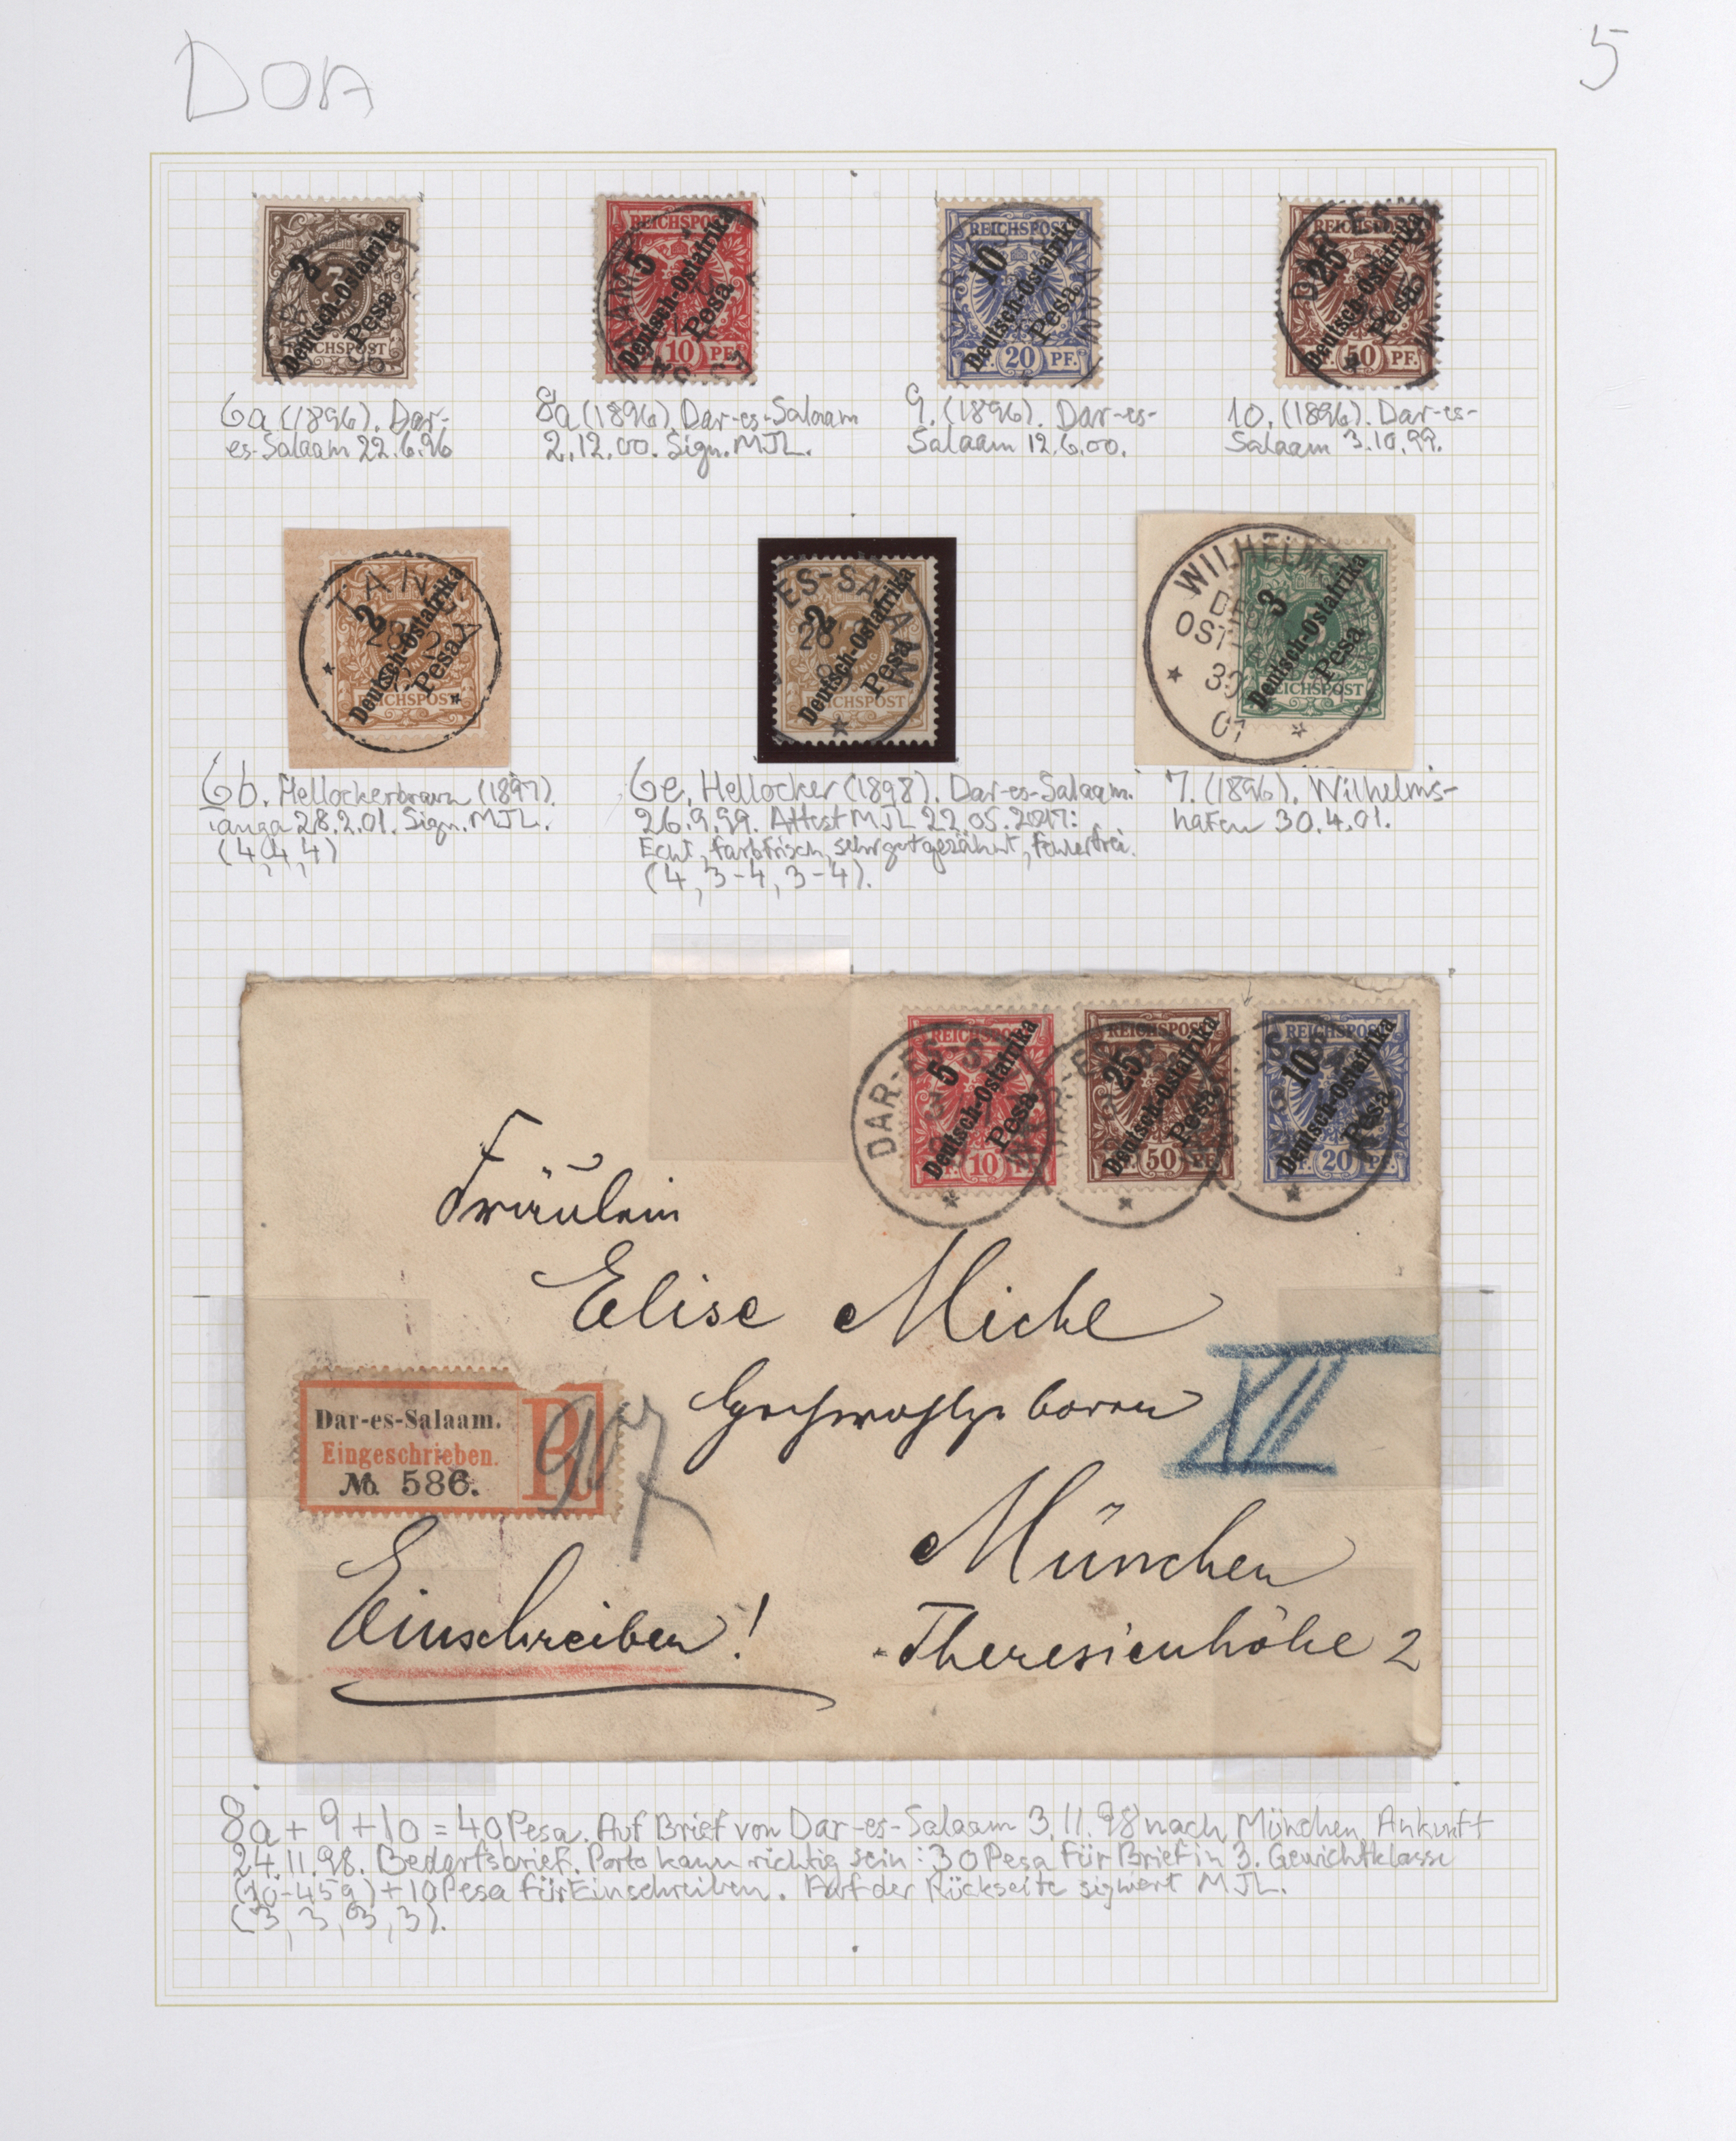 DOA
5
2
Deutsch-Ostafrika
Pesa
REICHSPOST
5
Deutsch-Ostafrika
Pesa
10 PF.
REICHSPOST
10
Deutsch-Ostafrika
Pesa
20 PF.
REICHSPOST
25
Deutsch-Ostafrika
Pesa
50 PF.
6a (1896). Dar-
es-Salaam 22.6.96
8a (1896). Dar-es-Salaam
2.12.00. Sign. MJL.
9. (1896). Dar-es-
Salaam 12.6.00.
10. (1896). Dar-es-
Salaam 3.10.99.
TANGA
2
28 2
Deutsch-Ostafrika
Pesa
REICHSPOST
ES-SALAAM
2
26
Deutsch-Ostafrika
Pesa
REICHSPOST
WILHELM
OST
30
01
3
Deutsch-Ostafrika
Pesa
REICHSPOST
6b. Hellockerbraun (1897).
Tanga 28.2.01. Sign. MJL.
(4,4,4)
6e. Hellocker (1898). Dar-es-Salaam.
26.9.99. Attest MJL 22.05.2017:
Echt, farbfrisch, sehr gut gezähnt, fehlerfrei.
(4, 3-4, 3-4).
7. (1896). Wilhelms-
hafen 30.4.01.
REICHSPOST
5
Deutsch-Ostafrika
Pesa
10
DAR-ES-S
REICHSPOST
25
Deutsch-Ostafrika
Pesa
50
REICHSPOST
10
Deutsch-Ostafrika
Pesa
20 PF.
Fräulein
Elise Michl
Hochwohlgeboren
XII
München
Theresienhöhe 2
Dar-es-Salaam.
Eingeschrieben.
No. 586.
R
907
Einschreiben!
8a + 9 + 10 = 40 Pesa. Auf Brief von Dar-es-Salaam 3.11.98 nach München Ankunft
24.11.98. Bedarfsbrief. Porto kann richtig sein: 30 Pesa für Brief in 3. Gewichtklasse
(30-45g) + 10 Pesa für Einschreiben. Auf der Rückseite signiert MJL.
(3, 3, 3, 3).